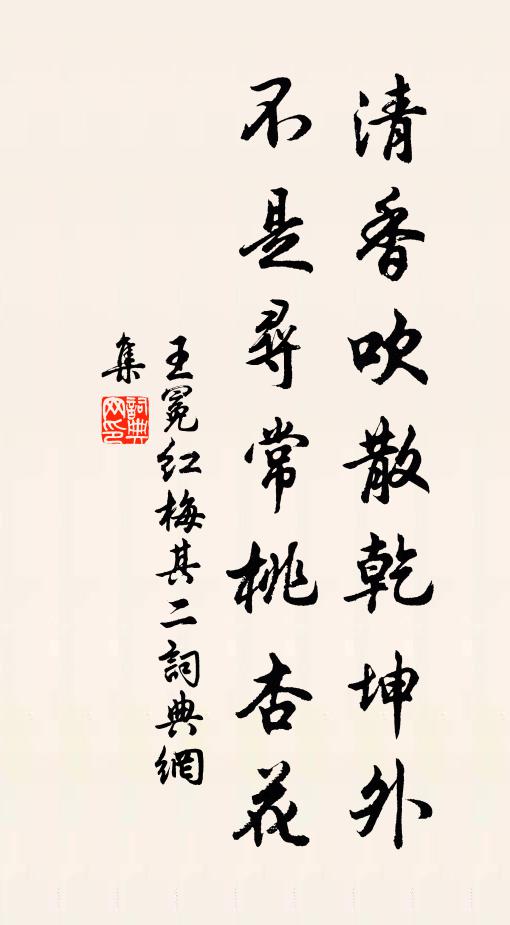 清香吹散乾坤外
不是尋常桃杏花
王冕红梅其二詞典網
集
詞典网印